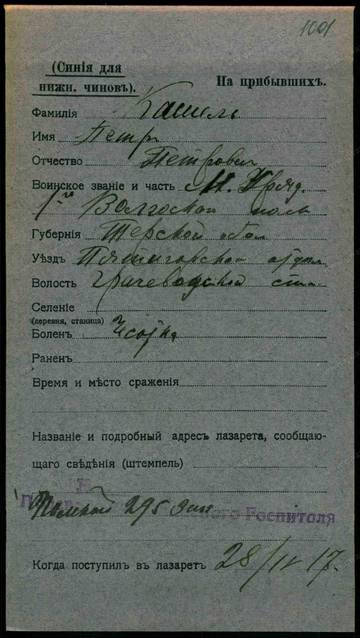 1001
(Синія для
нижн. чиновъ).
На прибывшихъ.
Фамилія Кашель
Имя Петр
Отчество Петрович
Воинское званіе и часть М. Уряд.
1го Волгского пол
Губернія Терской обл
Уѣздъ Пятигорскаго отдѣл
Волость ста
Селеніе
(деревня, станица)
Боленъ Чесотка
Раненъ
Время и мѣсто сраженія
Названіе и подробный адресъ лазарета, сообщаю-
щаго свѣдѣнія (штемпель)
295 Госпиталя
Когда поступилъ въ лазаретъ 28/IV 17.